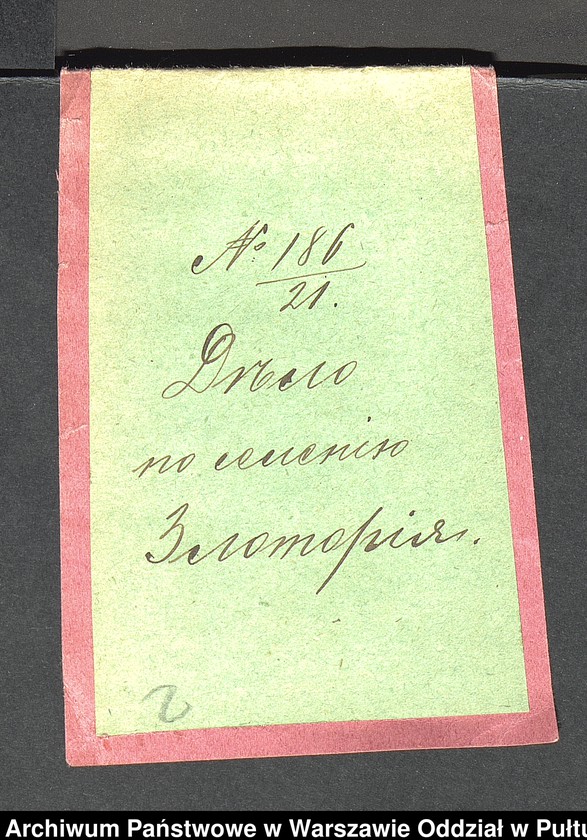 № 186
21.
Дѣло
по селенію
Злоторія.
2
Archiwum Państwowe w Warszawie Oddział w Pułtu